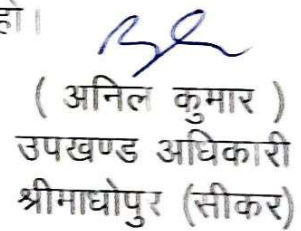 हो।
( अनिल कुमार )
उपखण्ड अधिकारी
श्रीमाधोपुर (सीकर)